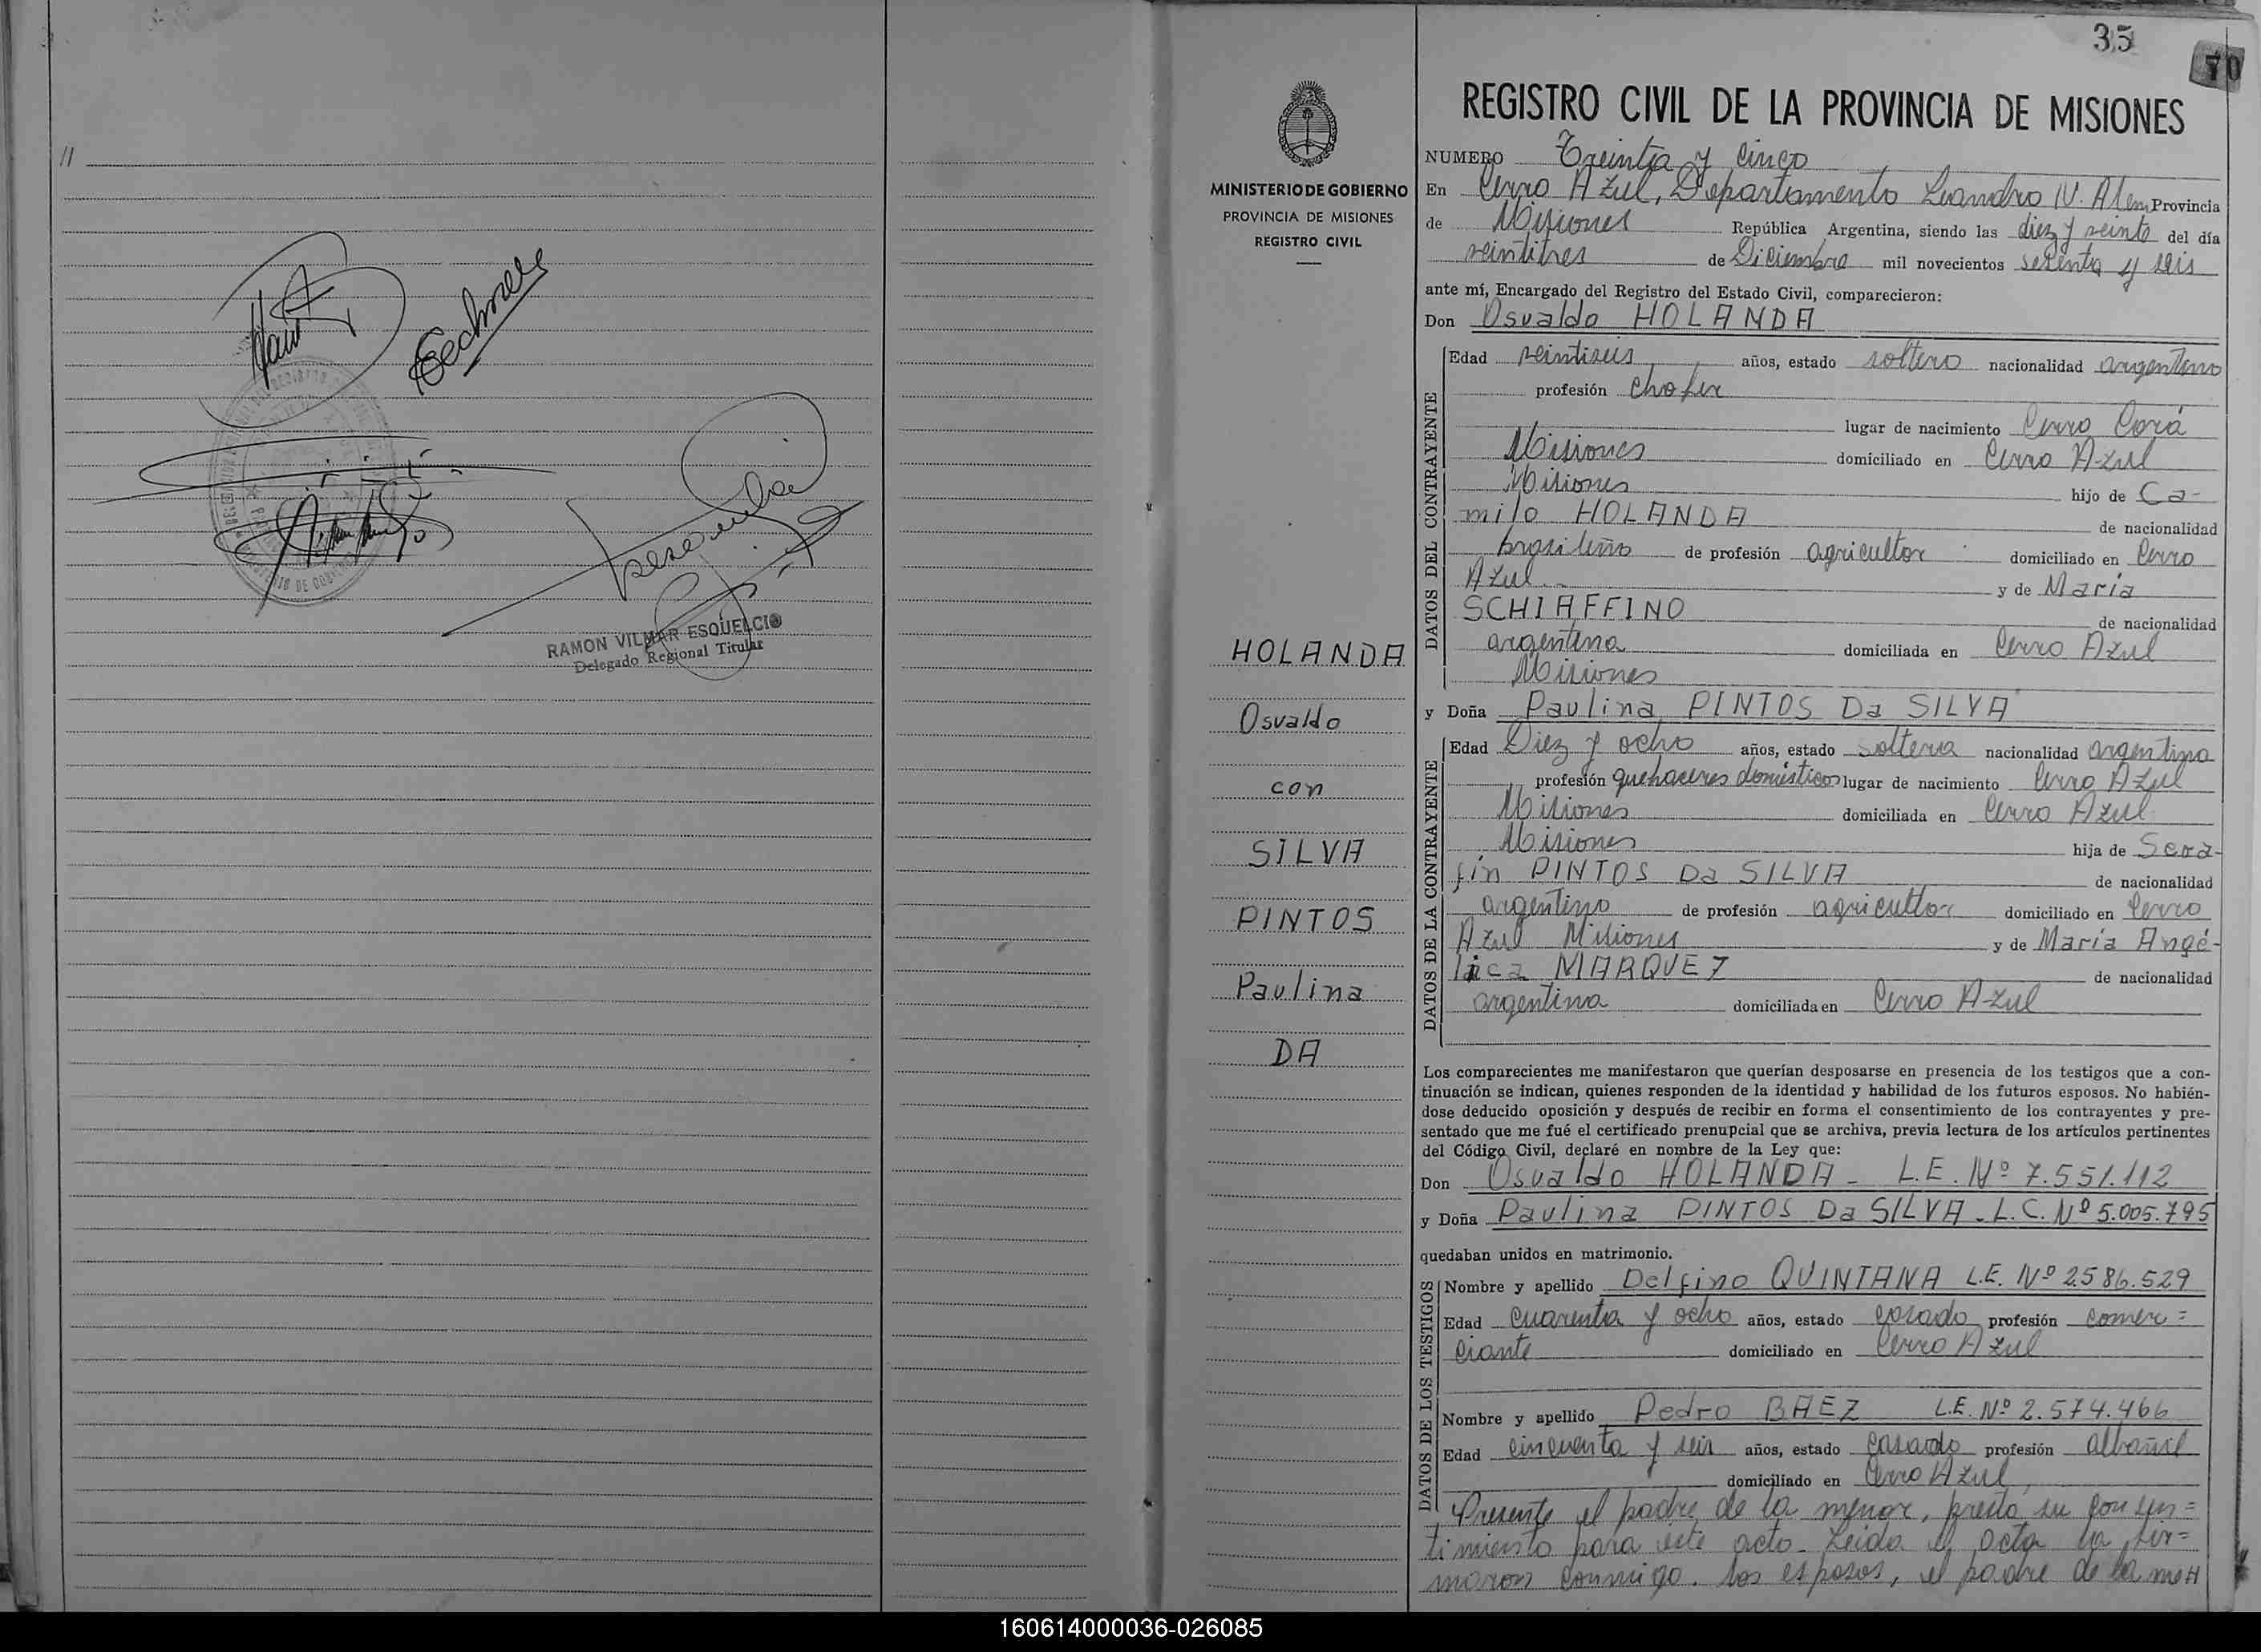 //
RAMON VILMAR ESQUELCIO
Delegado Regional Titular
35
70
MINISTERIO DE GOBIERNO
PROVINCIA DE MISIONES
REGISTRO CIVIL
HOLANDA
Osvaldo
con
SILVA
PINTOS
Paulina
DA
REGISTRO CIVIL DE LA PROVINCIA DE MISIONES
NUMERO Treinta y Cinco
En Cerro Azul, Departamento Leandro N. Alem Provincia
de Misiones República Argentina, siendo las diez y veinte del día
veintitres de Diciembre mil novecientos setenta y seis
ante mí, Encargado del Registro del Estado Civil, comparecieron:
Don Osvaldo HOLANDA
DATOS DEL CONTRAYENTE
Edad veintiseis años, estado soltero nacionalidad argentino
profesión chofer
lugar de nacimiento Cerro Corá
Misiones domiciliado en Cerro Azul
Misiones hijo de Ca-
milo HOLANDA de nacionalidad
brasileño de profesión agricultor domiciliado en Cerro
Azul y de María
SCHIAFFINO de nacionalidad
argentina domiciliada en Cerro Azul
Misiones
y Doña Paulina PINTOS Da SILVA
DATOS DE LA CONTRAYENTE
Edad Diez y ocho años, estado soltera nacionalidad argentina
profesión quehaceres domésticos lugar de nacimiento Cerro Azul
Misiones domiciliada en Cerro Azul
Misiones hija de Sera-
fin PINTOS Da SILVA de nacionalidad
argentino de profesión agricultor domiciliado en Cerro
Azul Misiones y de María Angé-
lica MARQUEZ de nacionalidad
argentina domiciliada en Cerro Azul
Los comparecientes me manifestaron que querían desposarse en presencia de los testigos que a con-
tinuación se indican, quienes responden de la identidad y habilidad de los futuros esposos. No habién-
dose deducido oposición y después de recibir en forma el consentimiento de los contrayentes y pre-
sentado que me fué el certificado prenupcial que se archiva, previa lectura de los artículos pertinentes
del Código Civil, declaré en nombre de la Ley que:
Don Osvaldo HOLANDA - L.E. Nº 7.551.112
y Doña Paulina PINTOS Da SILVA - L.C. Nº 5.005.795
quedaban unidos en matrimonio.
DATOS DE LOS TESTIGOS
Nombre y apellido Delfino QUINTANA L.E. Nº 2.586.529
Edad cuarenta y ocho años, estado casado profesión comer=
ciante domiciliado en Cerro Azul
Nombre y apellido Pedro BAEZ L.E. Nº 2.574.466
Edad cincuenta y seis años, estado casado profesión albañil
domiciliado en Cerro Azul
Presente el padre de la menor, presta su consen=
timiento para este acto. Leida el acta la fir=
maron conmigo. los esposos, el padre de la me//
160614000036-026085